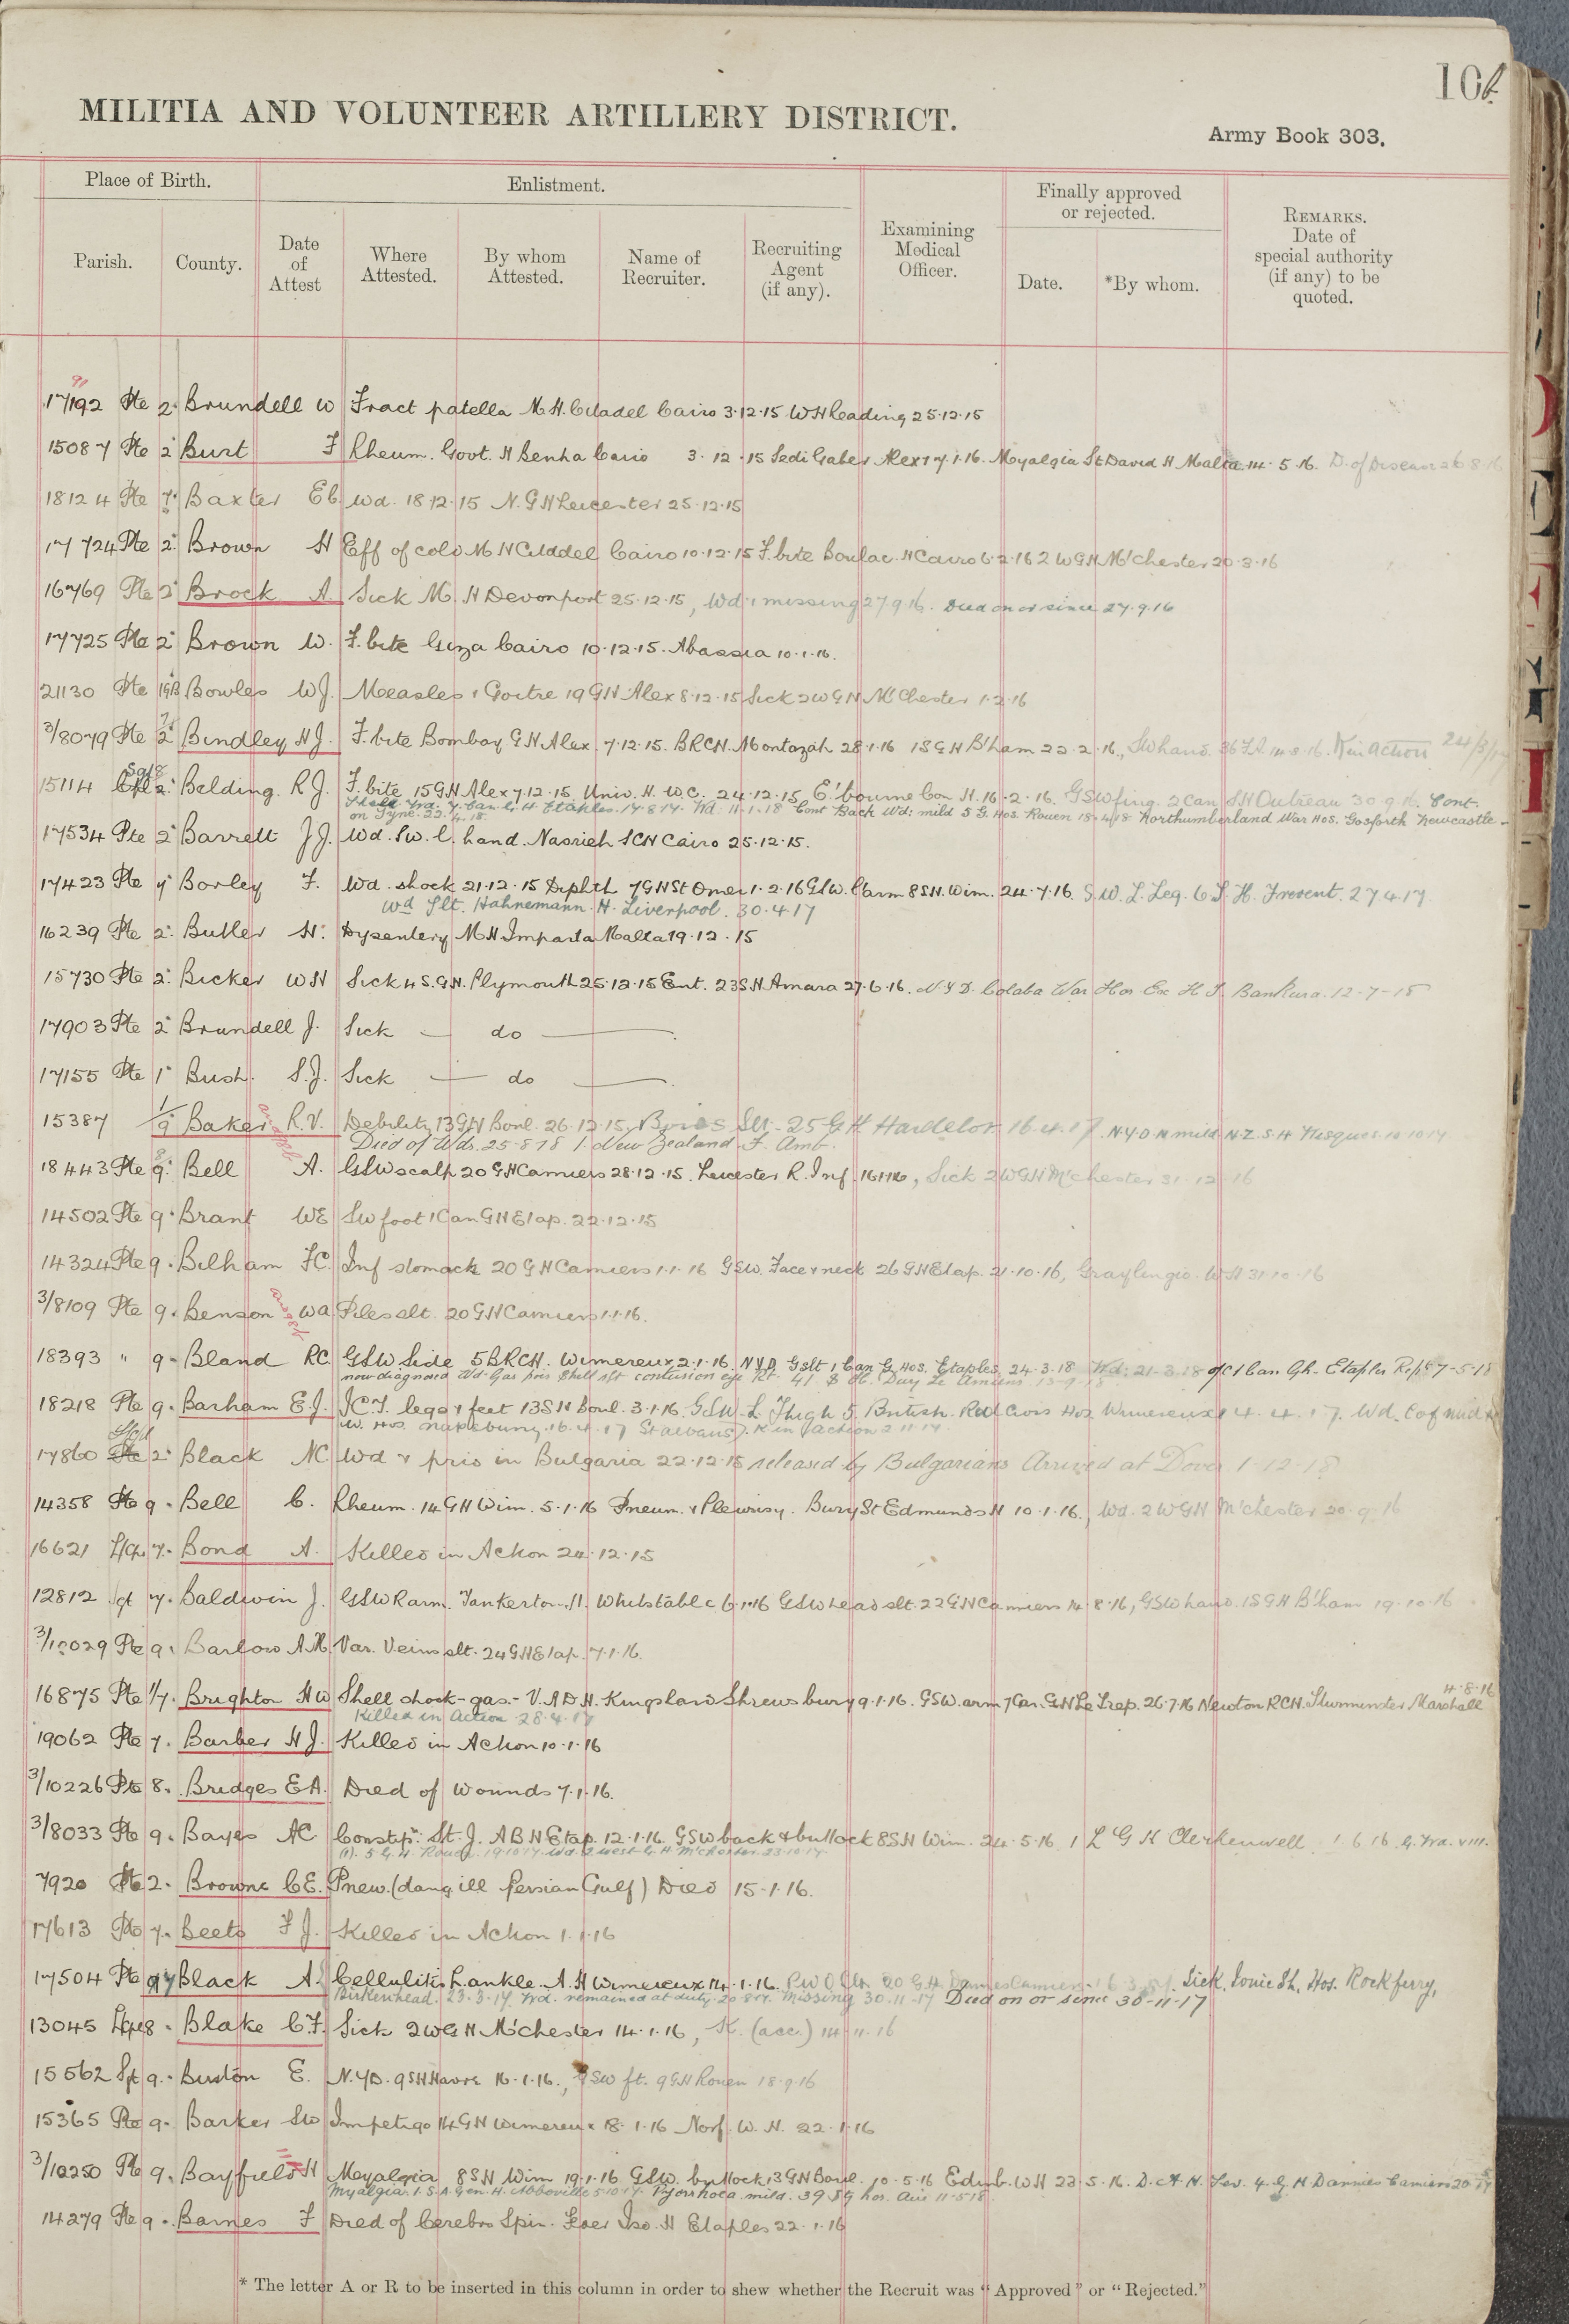 106
MILITIA AND VOLUNTEER ARTILLERY DISTRICT.
Army Book 303.
Place of Birth.
Enlistment.
Finally approved or rejected.
Parish.
County.
Date of Attest
Where Attested.
By whom Attested.
Name of Recruiter.
Recruiting Agent (if any).
Examining Medical Officer.
Date.
*By whom.
REMARKS. Date of special authority (if any) to be quoted.
91
17192 Pte 2. Brundell W Fract patella M.H. Citadel Cairo 3.12.15 WH Reading 25.12.15
15087 Pte 2 Burt F Rheum. Govt. H Benha Cairo 3.12.15 Sedi Gaber Alex 7.1.16. Myalgia St David H Malta 14.5.16. D. of Disease 26.8.16
18124 Pte 7. Baxter E wd. 18.12.15 N.GH Leicester 25.12.15
17724 Pte 2. Brown H Eff of cold MH Citadel Cairo 10.12.15 F.bite Boulac. H Cairo 6.2.16 2WGH M'Chester 20.3.16
16769 Pte 2 Brock A. Sick M.H Devonport 25.12.15, Wd & missing 27.9.16. Died on or since 27.9.16
17725 Pte 2 Brown W. F.bite Giza Cairo 10.12.15. Abassia 10.1.16.
21130 Pte Bowles WJ. Measles & Goitre 19GH Alex 8.12.15 Sick 2WGH M'Chester 1.2.16
3/8079 Pte 2 Bindley HJ. F.bite Bombay GH Alex. 7.12.15. BRCH. Montazah 28.1.16 1SGH B'ham 22.2.16., SW hand. 36FA 14.8.16. K in action 24/3/17
15114 Cpl Sgt 2. Belding. R J. F.bite 15GH Alex 7.12.15 Univ. H. W.C. 24.12.15 E'bourne Con H. 16.2.16. GSW fing. 2 Can SH Outreau 30.9.16. Cont.
Wd. 7. Can. G. H. Etaples. 17.8.17. Wd. 11.1.18 Cont Back Wd: mild 5 G. Hos. Rouen 18.4.18 Northumberland War Hos. Gosforth Newcastle-
on Tyne. 22.4.18.
17534 Pte 2 Barrett JJ. Wd. SW. L. hand. Nasrieh SCH Cairo 25.12.15.
17423 Pte 7 Borley F. Wd. shock 21.12.15 Diphth 7GH St Omer 1.2.16 GSW. arm 8SH. Wim. 24.7.16. S.W. L. Leg. 6 S. H. Frevent. 27.4.17.
wd Slt. Hahnemann. H. Liverpool. 30.4.17
16239 Pte 2. Butler H. Dysentery MH Imtarfa Malta 19.12.15
15730 Pte 2. Bicker WH Sick 4 S.G.H. Plymouth 25.12.15 Ent. 23S.H. Amara 27.6.16. N.Y.D. Colaba War Hos Ex H.S. Bankura. 12-7-18
17903 Pte 2 Brundell J. Sick — do —
17155 Pte 1. Bush. S.J. Sick — do —
15387 1/9 Baker R.V. Debility 13GH Boul. 26.12.15, Boils SH. 25 GH Hardelot 16.4.17. N.Y.D.N mild N.Z.S.H 10.10.17
Died of Wds. 25.8.18 1. New Zealand F. Amb.
18443 Pte 9. Bell A. GSW scalp 20GH Camiers 28.12.15. Leicester R. Inf. 16.1.16, Sick 2WGH M'chester 31.12.16
14502 Pte 9. Brant WE SW foot 1 Can GH Etap. 22.12.15
14324 Pte 9. Bilham FC. Inf stomach 20GH Camiers 1.1.16 GSW. Face & neck 26GH Etap. 21.10.16, Graylingw. WH 31.10.16
3/8109 Pte 9. Benson WA Piles slt. 20GH Camiers 1.1.16.
18393 " 9. Bland RC. GSW Side 5BRCH. Wimereux 2.1.16. NYD G slt 1 Can G Hos. Etaples. 24.3.18 Wd: 21.3.18 1 Can Gh. Etaples 7-5-18
now diagnosed Wd. Gas pois Shell slt contusion eye Rt. 41 Dury Amiens
18218 Pte 9. Barham E.J. I.C.T. legs & feet 13SH Boul. 3.1.16. GSW. L Thigh 5. British. Red Cross Hos Wimereux 4.4.17. Wd. mild
W. Hos. Napsbury. 16.4.17 St Albans). K in action 2.11.17.
17860 Pte 2 Black NC Wd & pris in Bulgaria 22.12.15 released by Bulgarians Arrived at Dover 1-12-18
14358 Pte 9. Bell C. Rheum. 14GH Wim. 5.1.16 Pneum. & Pleurisy. Bury St Edmunds H 10.1.16., Wd. 2WGH M'chester 20.9.16
16621 L/Cpl 7. Bond A. Killed in Action 24.12.15
12812 Sgt 7. Baldwin J. GSW R arm. Tankerton H. Whitstable 6.1.16 GSW head slt. 22GH Camiers 14.8.16, GSW hand. 1SGH B'ham 19.10.16
3/10029 Pte 9. Barlow A.H. Var. Veins slt. 24GH Etap. 7.1.16.
16875 Pte 1/7. Brighton HW Shell shock - gas. - V.A.D.H. Kingsland Shrewsbury 9.1.16. GSW. arm 7 Can. GH Le Trep. 26.7.16 Newton RCH. Sturminster Marshall 4.8.16
Killed in Action 28.4.17
19062 Pte 7. Barber HJ. Killed in Action 10.1.16
3/10226 Pte 8. Bridges EA. Died of Wounds 7.1.16.
3/8033 Pte 9. Bayes AC Constipn. St. J. ABH Etap. 12.1.16. GSW back & buttock 8SH Wim. 24.5.16 1 L G H Clerkenwell. 1.6.16 G. Wd.
5 G. H. Rouen. 19.10.17. Wd. 2 West. G. H. M'chester. 23.10.17.
7920 Pte 2. Browne CE. Pneu. (dang. ill Persian Gulf) Died 15.1.16.
17613 Pte 7. Beets FJ. Killed in Action 1.1.16
17504 Pte 9 7 Black A. Cellulitis L. ankle. A.H Wimereux 14.1.16. 20 G.H. Dannes Camiers. Sick. Ionic St. Hos. Rockferry,
Birkenhead. 23.3.17. Wd. remained at duty. 20.8.17. Missing 30.11.17 Died on or since 30-11-17
13045 L/Cpl 8. Blake C.F. Sick 2WGH M'chester 14.1.16, K. (acc.) 14.11.16
15562 Sgt 9. Buston E. N.Y.D. 9SH Havre 16.1.16., GSW ft. 9GH Rouen 18.9.16
15365 Pte 9. Barker SW Impetigo 14GH Wimereux 18.1.16 Norf. W. H. 22.1.16
3/10250 Pte 9. Bayfield H Myalgia 8SH Wim 19.1.16 GSW. buttock 13GH Boul. 10.5.16 Edinb. WH 23.5.16. D.A.H. Fev. 4. G. H Dannes Camiers 20
Myalgia. 1. S.A. Gen. H. Abbeville 5.10.17. Pyorrhoea mild. 39 Stg hos. Aire 11.5.18
14279 Pte 9. Barnes F Died of Cerebro Spin. Fever Iso. H Etaples 22.1.16
* The letter A or R to be inserted in this column in order to shew whether the Recruit was "Approved" or "Rejected."